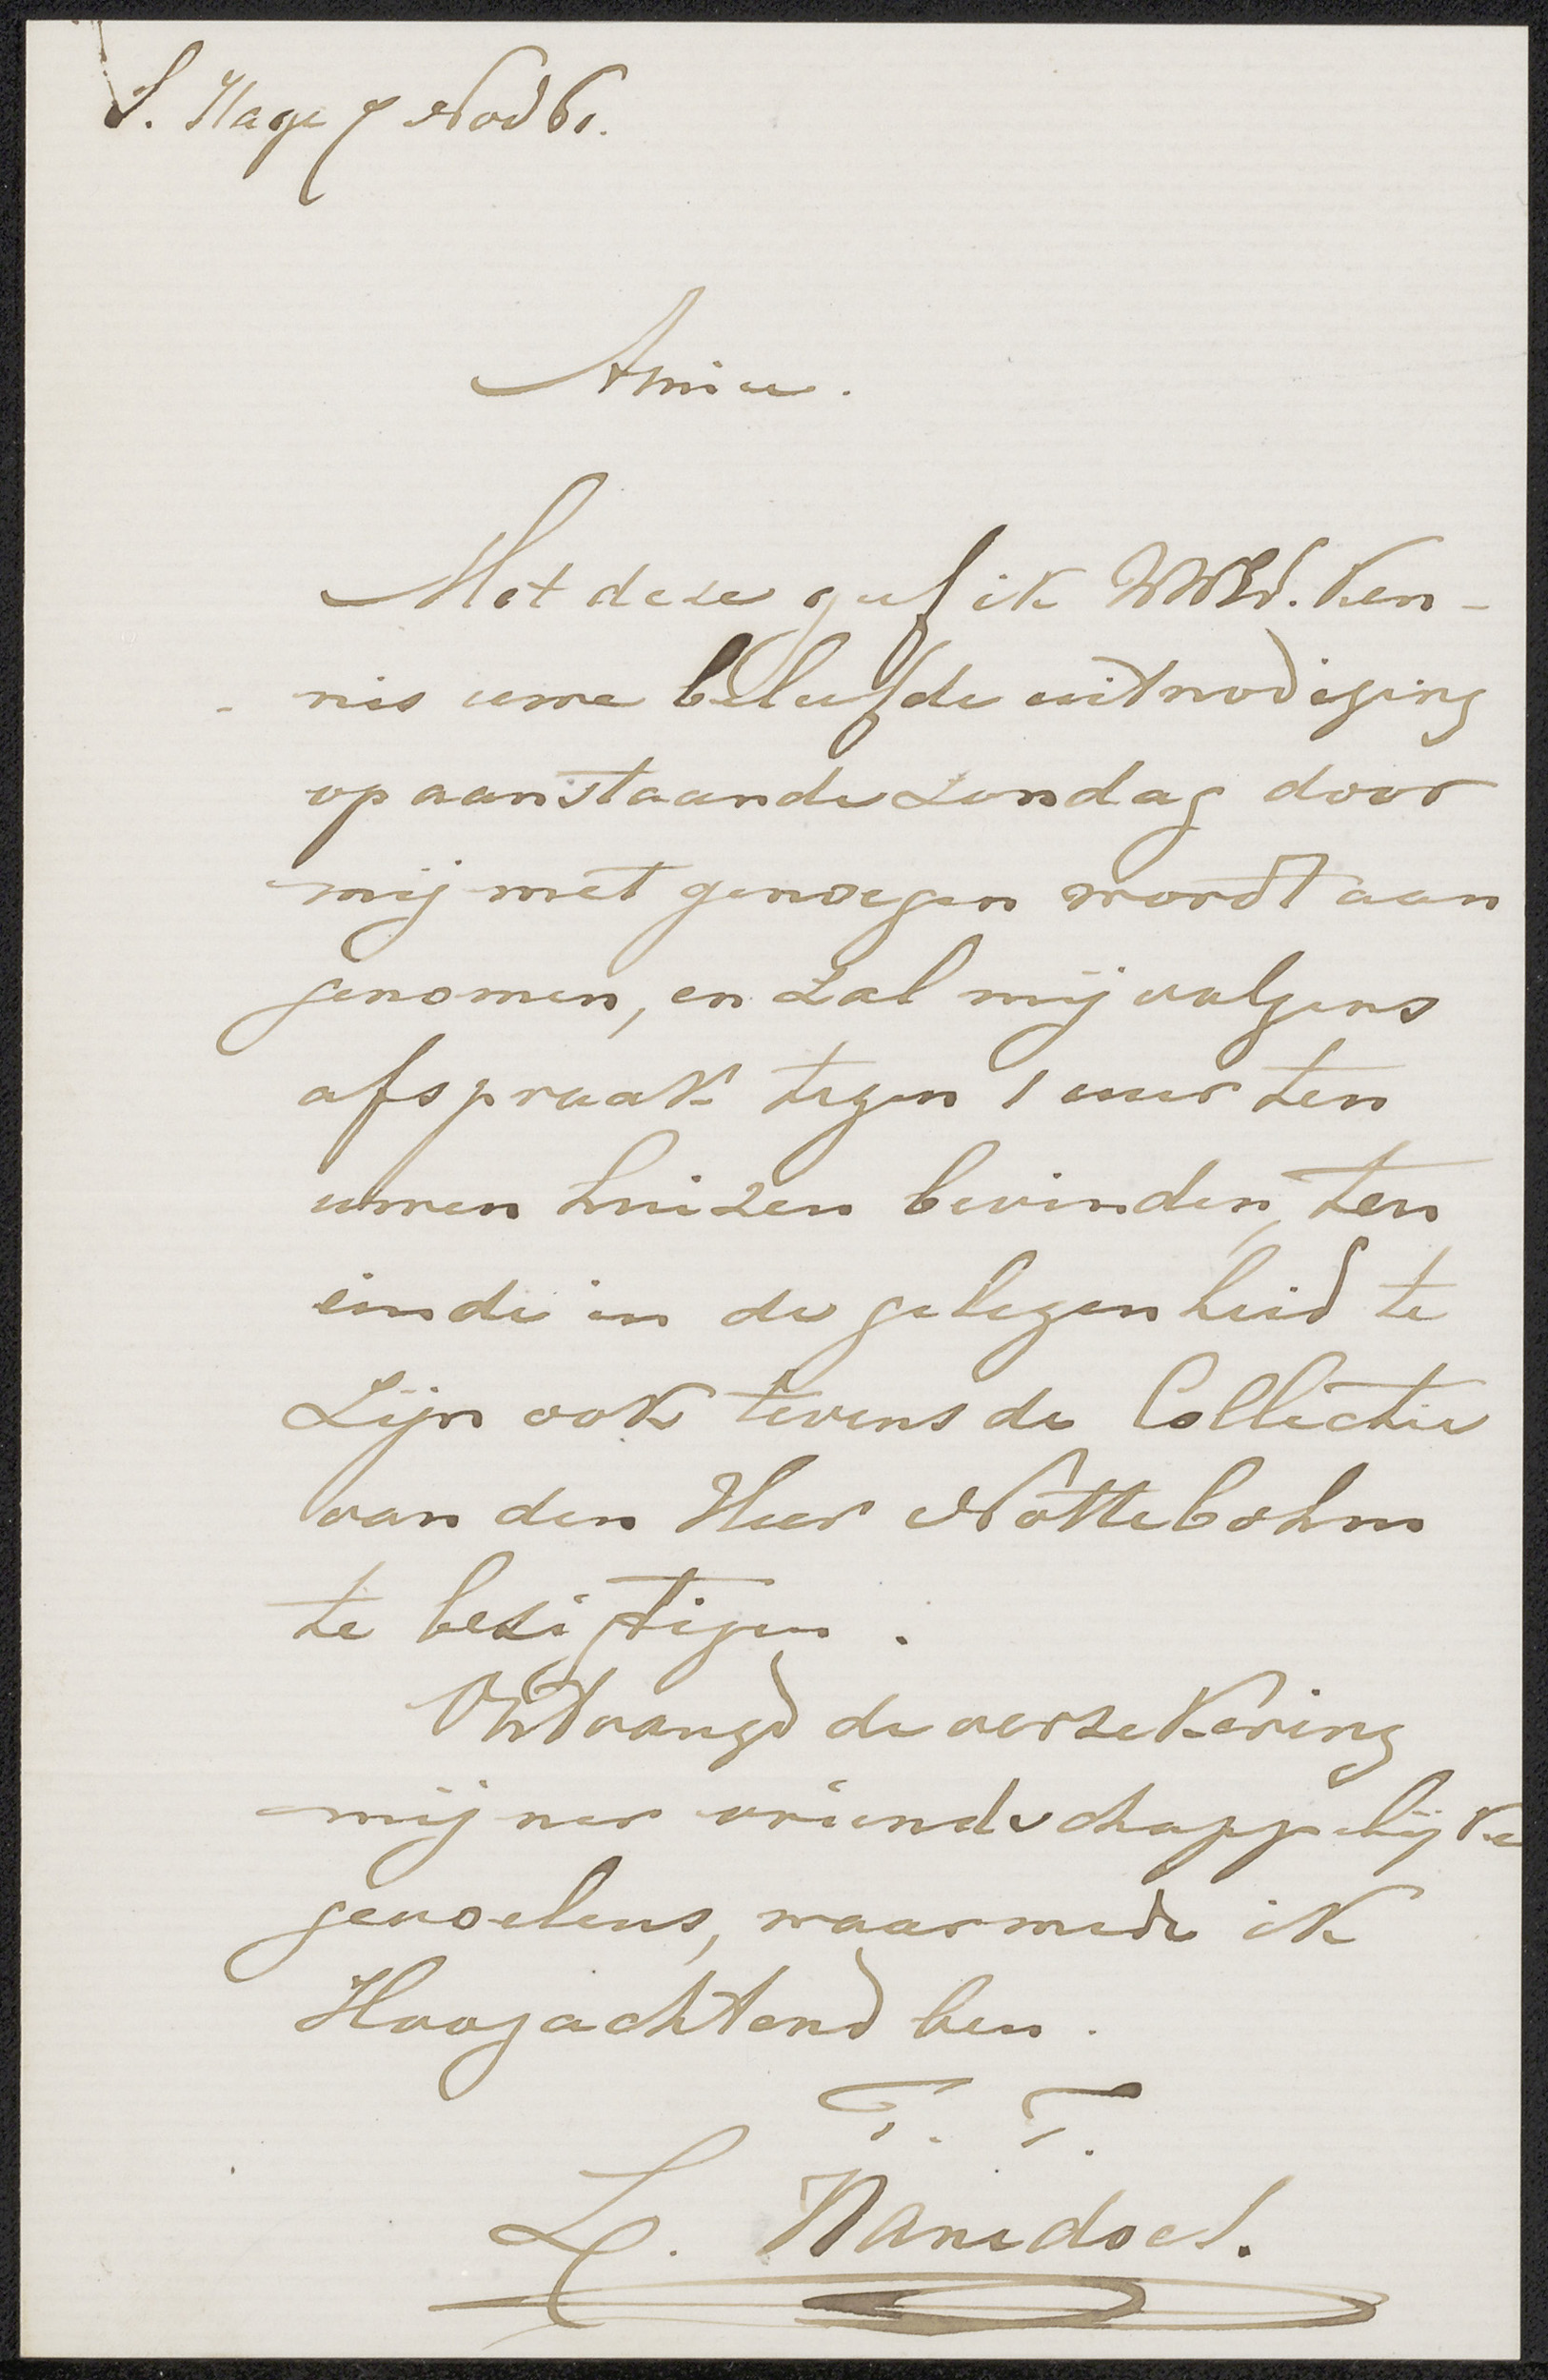 S. Hage 7 Nov 61.
Amice.
Met deze geef ik UWEd. ken-
- nis uwe beleefde uitnodiging
op aanstaande Zondag door
mij met genoegen wordt aan
genomen, en zal mij volgens
afspraak tegen 1 uur ten
uwen huizen bevinden, ten
einde in de gelegenheid te
zijn ook tevens de Collectie
van den Heer Nottebohm
te bezigtigen.
Ontvangd de verzekering
mijner vriendschappelijke
gevoelens, waarmede ik
Hoogachtend ben.
T. T.
L. Hanedoes.